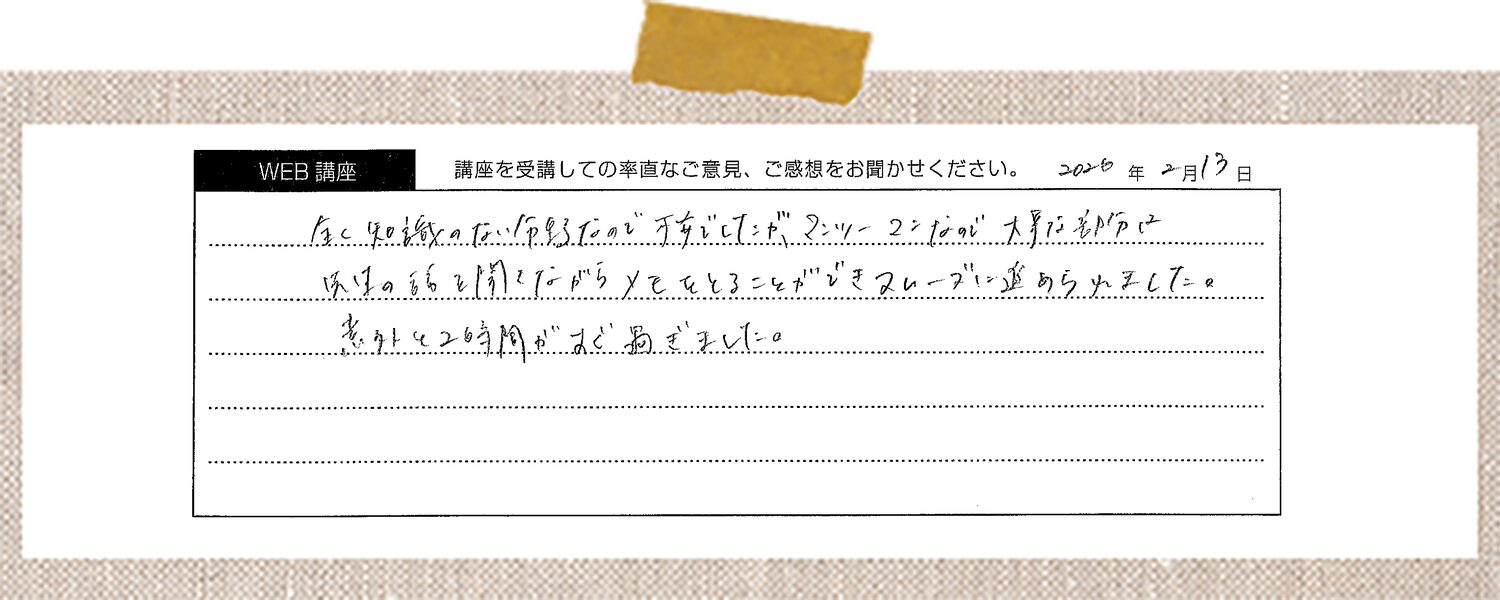 WEB 講座
講座を受講しての率直なご意見、ご感想をお聞かせください。 2026 年 2 月 13 日
全く知識のない分野なので不安でしたが、マンツーマンなので大事な部分は
先生の話を聞きながらメモをとることができスムーズに進められました。
意外と2時間がすぐ過ぎました。